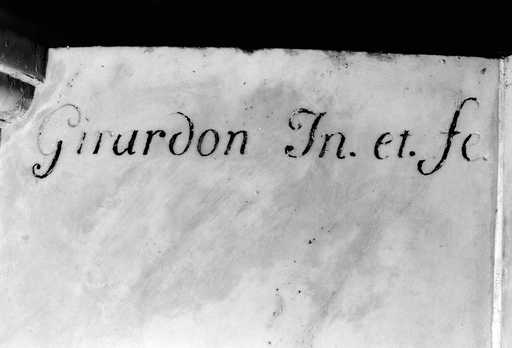 Girardon In. et. fe.